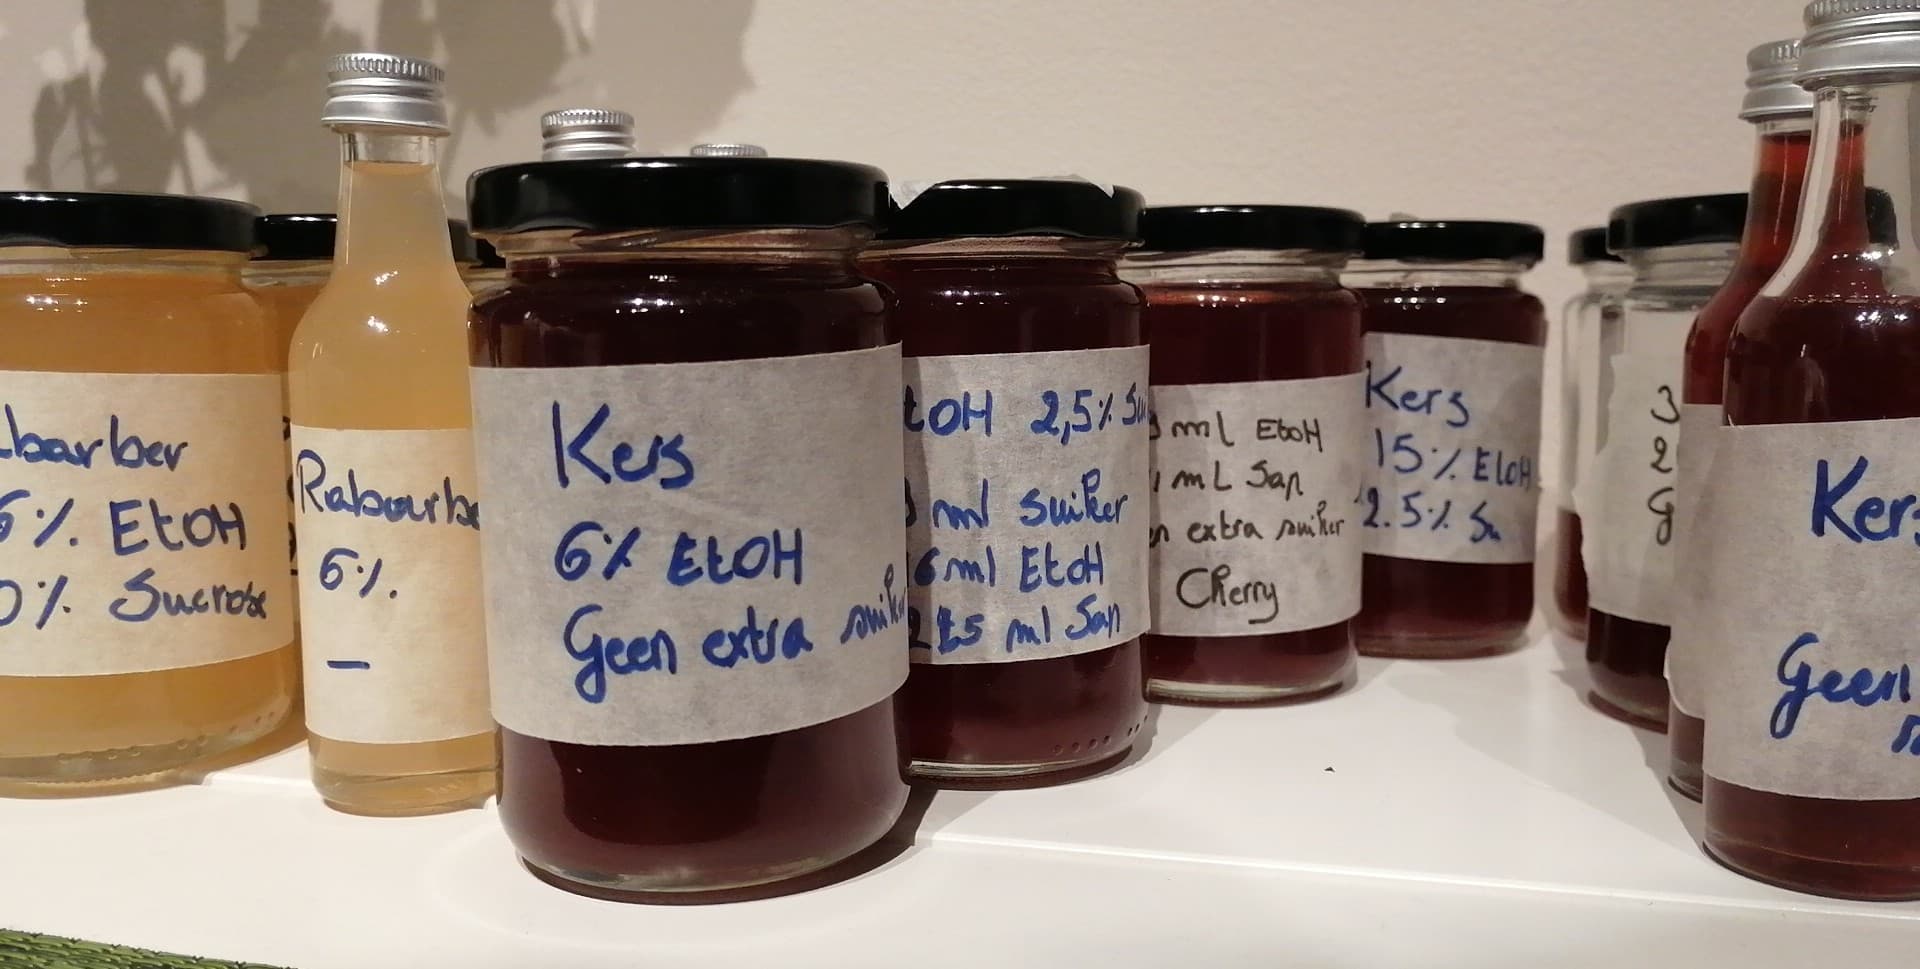 barber
% EtOH
0% Sucrose
Rabarbe
6%
—
Kers
6% EtOH
Geen extra suiker
tOH 2,5% Su
ml suiker
6 ml EtOH
ml Sap
ml EtoH
mL Sap
extra suiker
Cherry
Kers
15% EtOH
2.5% Su
3
2
G
Kers
Geen